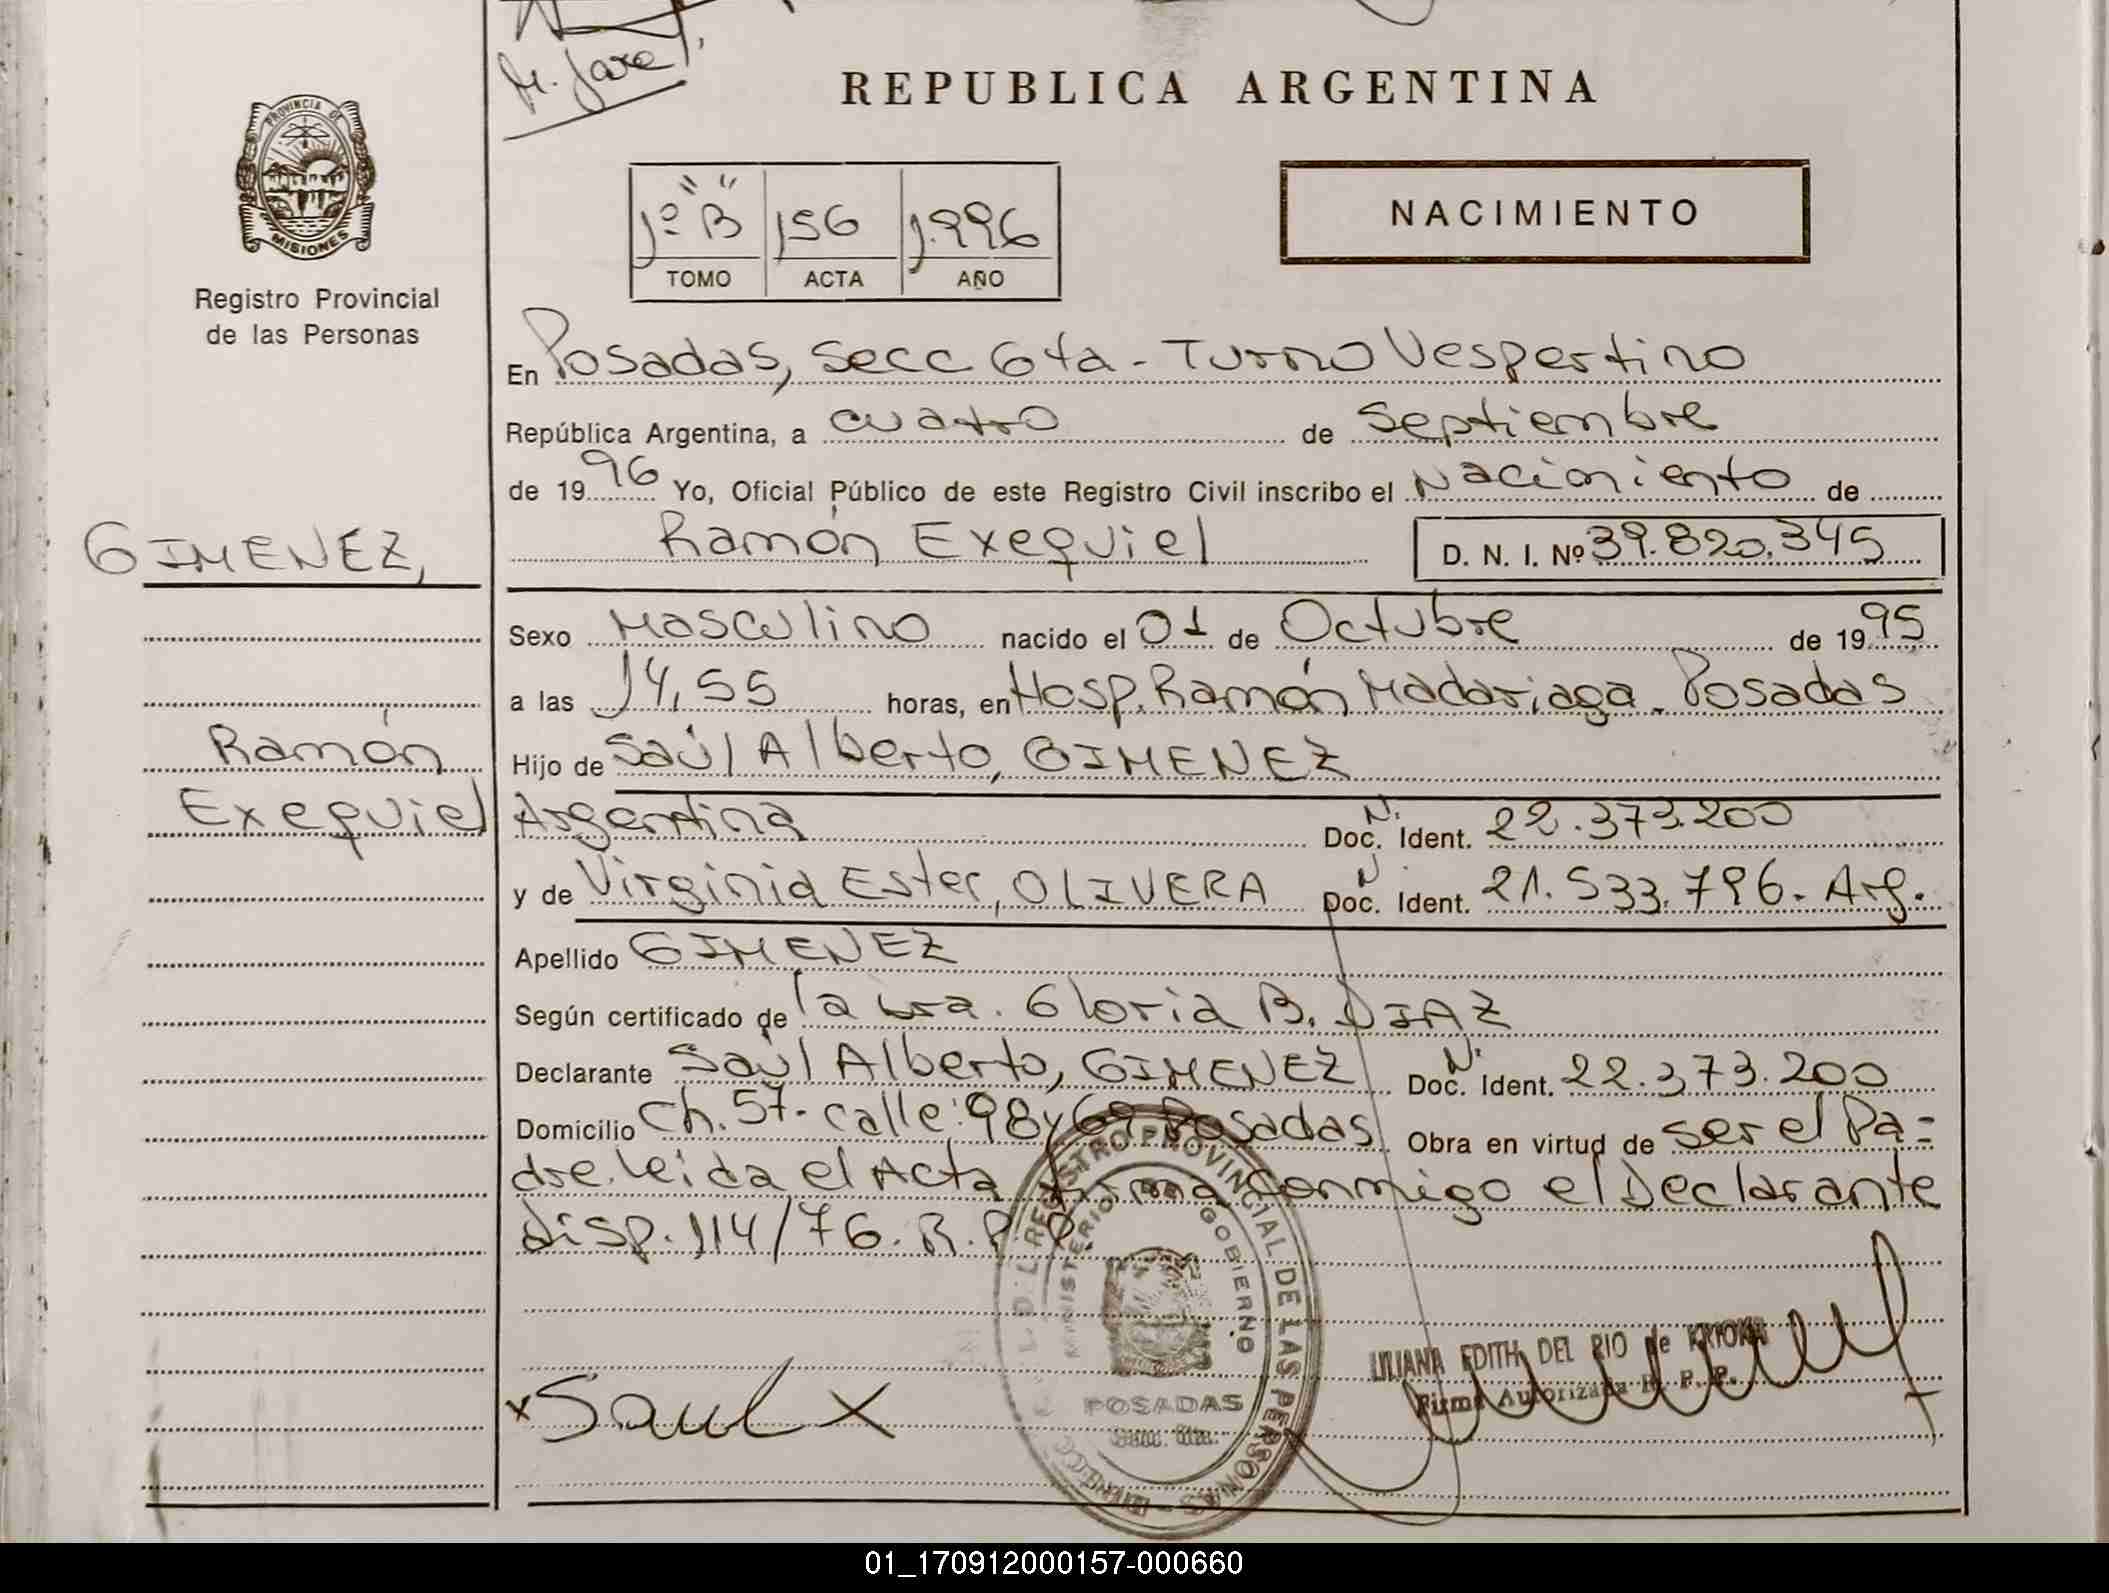 M. Jare
REPUBLICA ARGENTINA
PROVINCIA DE
MISIONES
Registro Provincial
de las Personas
1º "B" 156 1.996
TOMO ACTA AÑO
NACIMIENTO
En Posadas, Secc 6ta - Turno Vespertino
República Argentina, a cuatro de Septiembre
de 1996 Yo, Oficial Público de este Registro Civil inscribo el Nacimiento de
GIMENEZ,
Ramón Exequiel D. N. I. Nº 39.820.345
Sexo Masculino nacido el 01 de Octubre de 1995
a las 14,55 horas, en Hosp. Ramón Madariaga - Posadas
Ramón
Exequiel
Hijo de Saúl Alberto, GIMENEZ
Argentina N. Doc. Ident. 22.373.200
y de Virginia Ester, OLIVERA N Doc. Ident. 21.533.796. Arg.
Apellido GIMENEZ
Según certificado de la Gloria B. DIAZ
Declarante Saúl Alberto, GIMENEZ N. Doc. Ident. 22.373.200
Domicilio Ch. 57 - calle: 98 y 69 Posadas Obra en virtud de ser el Pa=
dre. leida el Acta firma conmigo el Declarante
disp. 114/76. R.P.P.
REGISTRO PROVINCIAL DE LAS PERSONAS
MINISTERIO DE GOBIERNO
POSADAS
LILIANA EDITH DEL RIO de KRIOKA
Firma Autorizada R. P. P.
x Saul x
01_170912000157-000660